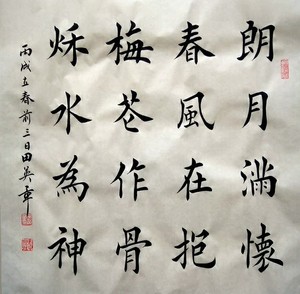 朗月満懷
春風在抱
梅花作骨
秌水為神
丙戌立春前三日田英章